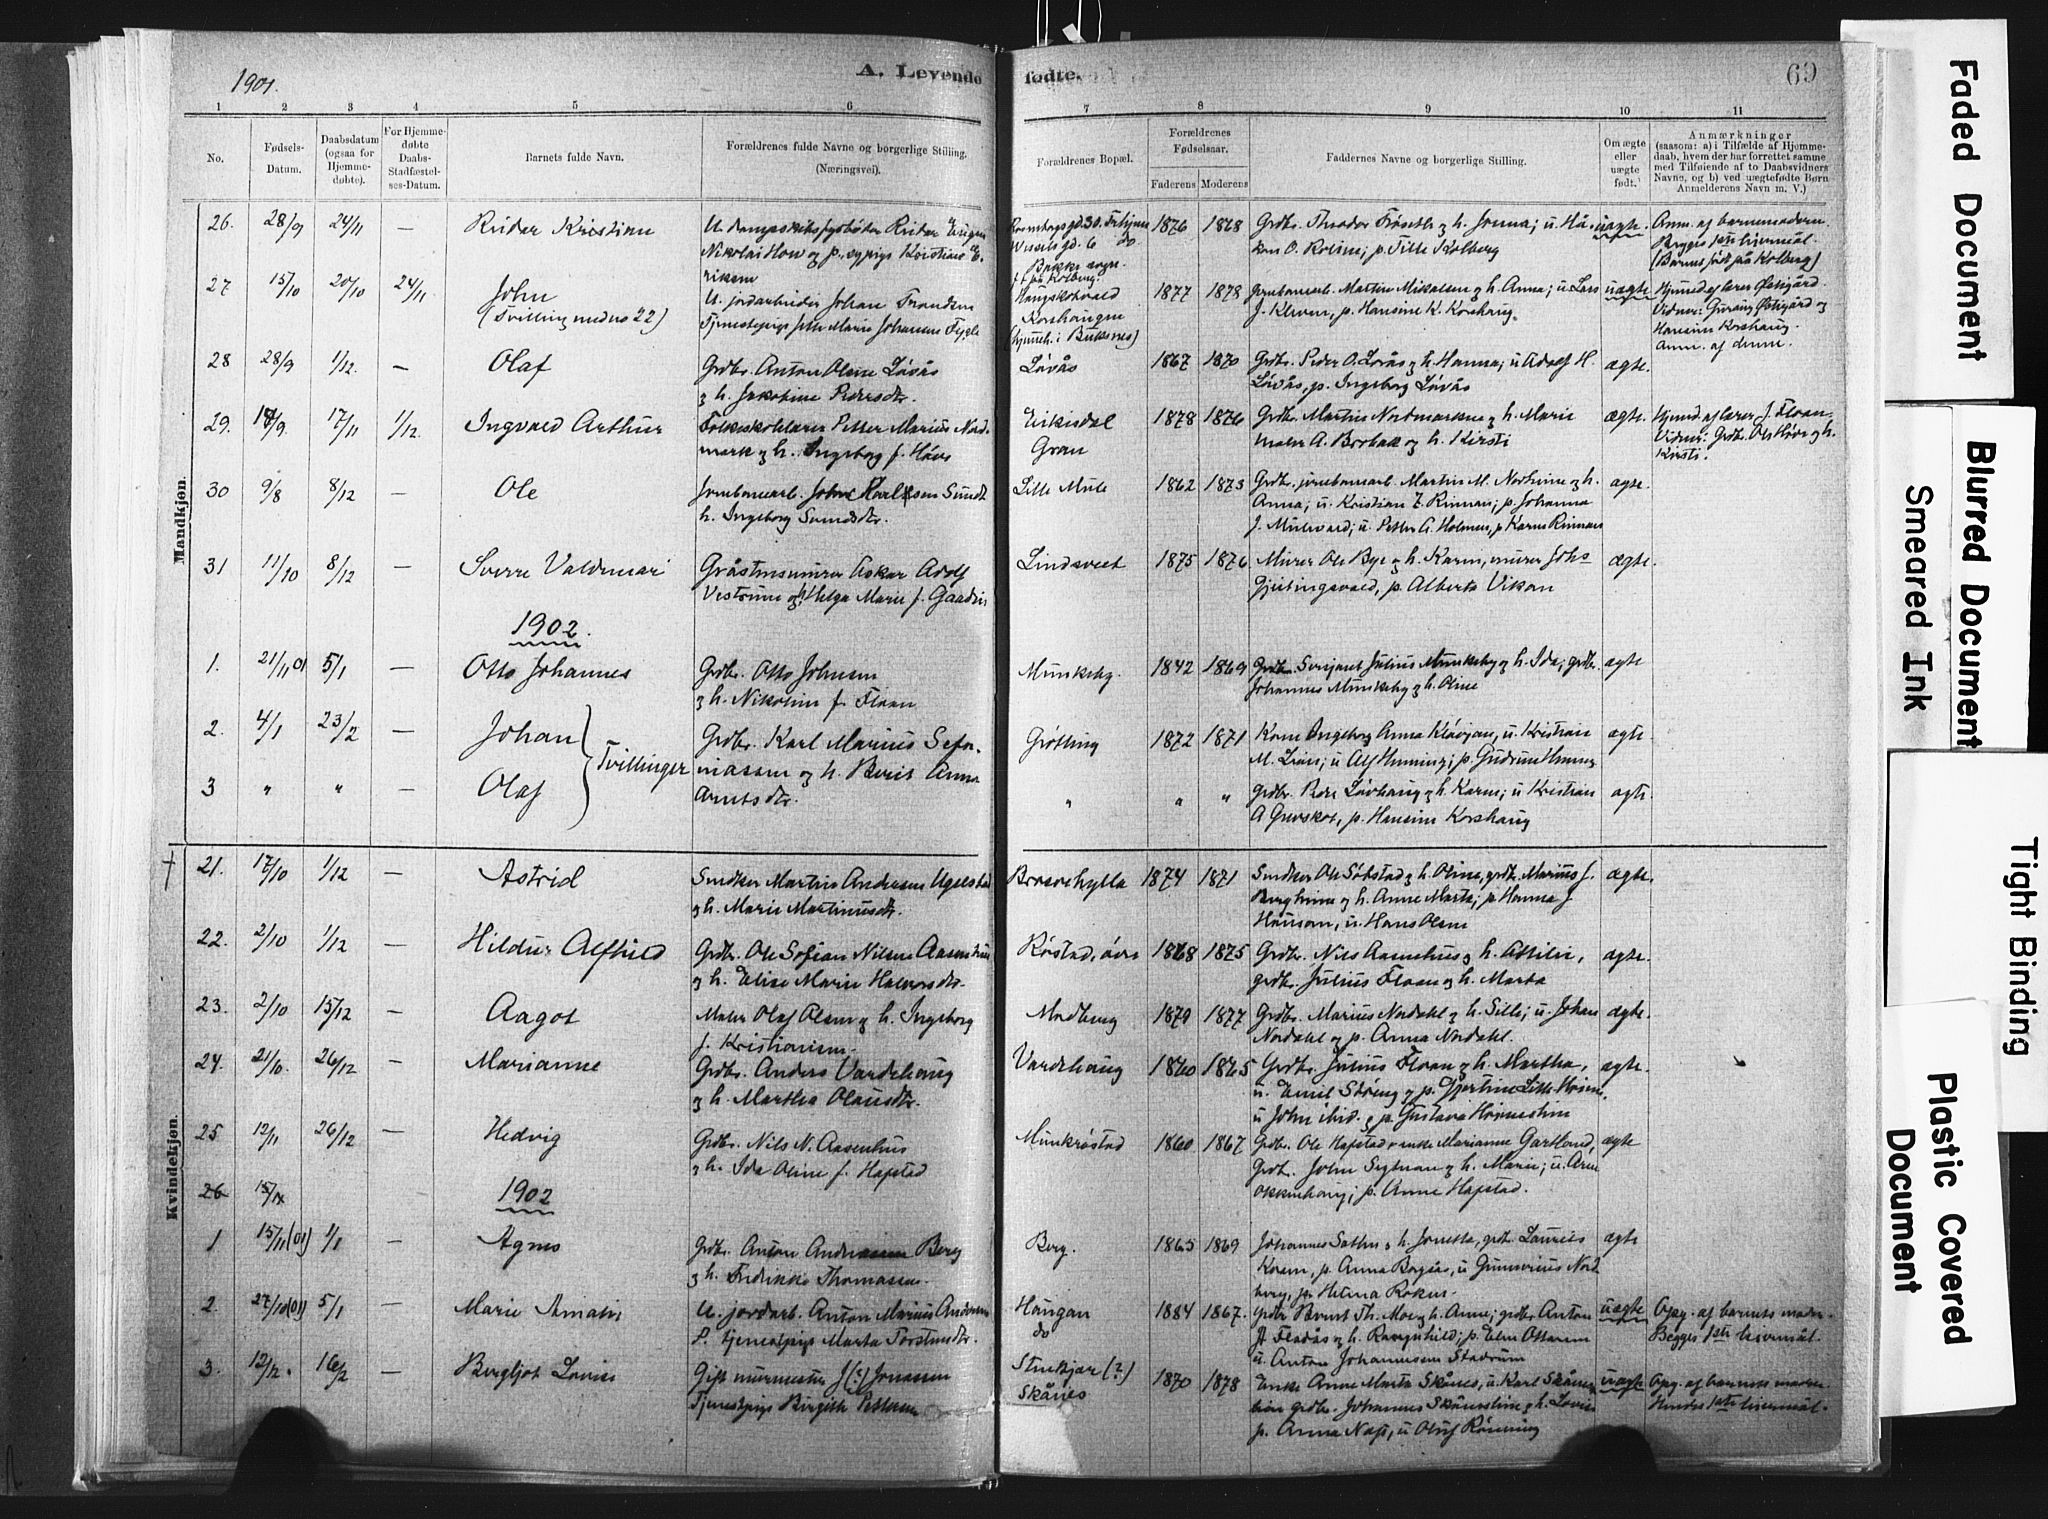 1901.
A. Levende
fødte.
69
1 2 3 4 5 6
7 8 9 10 11
No.
Fødsels-
Datum.
Daabsdatum
(ogsaa for
Hjemme-
døbte).
For Hjemme-
døbte
Daabs-
Stadfæstel-
ses-Datum.
Barnets fulde Navn.
Forældrenes fulde Navne og borgerlige Stilling.
(Næringsvei).
Forældrenes Bopæl.
Forældrenes
Fødselsaar.
Faderens Moderens
Faddernes Navne og borgerlige Stilling.
Om ægte
eller
uægte
født.
Anmærkninger
(saasom: a) i Tilfælde af Hjemme-
daab, hvem der har forrettet samme
med Tilføiende af to Daabsvidners
Navne, og b) ved uægtefødte Børn
Anmelderens Navn m. V.)
Mandkjøn.
26. 28/9 24/11 Reidar Kristian
Nikolai How og p., sypige
Rosenborggd. 30. Trhjem
Wessels gd. 6 do
1876 1878 Grdbr. Theodor Frøseth og h. Jonna; u. Hå-
kon O. Rolin; p. Tille Kolberg
uægte. Anm. af barnemoderen
Begges 1ste leiermål.
(Barnet født på Kolberg)
27 15/10 20/10 24/11 John
(Tvilling med no 22)
U. jordarbeider Johan Trondsen
Tjenestepige Jette Marie Johansen
Korshaugen
(hjemh. i Buksnes)
1877 1878 Jernbanearb. Martin Mikalsen og h. Anna; u. Lars
J. Kleven, p. Hansine K. Korshaug.
uægte. Hjemmed. af lærer Østigård.
Vidner: Guruug Østigård og
Hansine Korshaug.
Anm. af denne.
28 28/9 1/12. — Olaf
Grdbr. Anton Oluf Løvås
og h. Jakobine Pedersdtr.
Løvås
1867 1870 Grdbr. Peder O. Løvås og h. Hanna; u. Adolf H.
Løvås, p. Ingeborg Løvås
ægte.
29. 18/9. 17/11 1/12. Ingvald Arthur
Folkeskolelærer Petter Marius Nord-
mark og h. Ingeborg f. Hove
Eriksdal
Gran
1878 1876 Grdbr. Martin Nordmarken og h. Marie
maler A. Borbak og h. Kirsti
ægte. Hjemmed. af lærer J. Floan.
Vidner: Grdbr. Ole Hove og h.
Kirsti.
30 9/8 8/12 — Ole
Jernbanearb. John Karlsen Sundt
h. Ingeborg Sundsdtr.
Lille Mule
1862 1873 Grdbr. jernbanearb. Martin M. Norheim og h.
Anna; u. Kristian E. Rinnan; p. Johanna
J. Mulevald; u. Petter A. Holmen, p. Karen Rinnan
ægte.
31 11/10 8/12 — Sverre Valdemar
Gråstensmurer Oskar Adolf
Vestrum og h. Helga Marie f. Gaadin
Lindsveet
1875 1876 Murer Ole Bye og h. Karen, murer Johs
Gjeitingsvold, p. Alberta Vikan
ægte.
1902.
1. 21/11 01 5/1 — Otto Johannes
Grdbr. Otto Johnsen
og h. Nikoline f. Floan
Munkeby.
1842 1869 Sersjant Julius Munkeby og h. Ida; grdbr.
Johannes Munkeby og h. Oline
ægte
2. 4/1 23/2 — Johan
Tvillinger
Grdbr. Karl Marius Sefa-
niassen og h. Berit Anna
Arntsdtr.
Grøtting
1872 1871 Kone Ingeborg Anna Kløvjan, u. Kristian
M. Lian; u. Alf Henning; p. Gudrun Henning
ægte
3 " " — Olaf
" " "
grdbr. Peder Løvhaug og h. Karen; u. Kristian
A. Grevskot, p. Hansine Korshaug
ægte.
Kvindekjøn.
21. 17/10 1/12 — Astrid
Snedker Martin Andersen Ugelstad
og h. Marie Martinusdtr.
Borsvehylla
1874 1871 Snedker Ole Søbstad og h. Oline, grdbr. Marius J.
Bergheim og h. Anne Marta; p. Hanna J.
Hansen, u. Hans Olsen
ægte.
22. 2/10 1/12 — Hildur Alfhild
Grdbr. Ole Sofian Nilsen Aasenhus
og h. Elise Marie Halvorsdtr.
Røstad, øvre
1868 1875 Grdbr. Nils Aasenhus og h. Attilie,
grdbr. Julius Floan og h. Marta
ægte.
23. 2/10 15/12 — Aagot
Maler Olaf Olsen og h. Ingeborg
f. Kristiansen.
Modberg
1879 1877 Grdbr. Marius Nordahl og h. Silli; u. Johan
Nordahl og p. Anna Nordahl.
ægte.
24. 21/10. 26/12 — Marianne
Grdbr. Anders Vardehaug
og h. Martha Olausdtr.
Vardehaug
1860 1865 Grdbr. Julius Floan og h. Martha,
u. Emil Støring og p. Gjertine
u. John ibid. og p. Gustava
ægte.
25 12/11 26/12 — Hedvig
Grdbr. Nils N. Aasenhus
og h. Ida Oline f. Hafstad
Munkrøstad
1860 1867 Grdbr. Ole Hafstad, enke Marianne Gartland,
Grdbr. John Segtnan og h. Marie; u. Arne
Okkenhaug; p. Anne Hafstad.
ægte
26 15/11
1902
1 15/11 (01) 1/1 — Agnes
Grdbr. Anton Andreassen Berg
og h. Fredrikke Thomassen.
Berg.
1865 1869 Johannes Sathen og h. Jonetta, grdbr. Laurits
Koren, p. Anna Borgsås, u. Gunnerius Nord-
berg, p. Helena
ægte
2. 27/10 (01) 5/1 — Marie Amalie
U. jordarb. Anton Marius Andersen
P. tjenestepige Marta Torstensdtr.
Haugan
do
1884 1867. Grdbr. Bernt Th. Moe og h. Anne; grdbr. Anton
A. Flaaås og h. Ragnhild; p. Elen Ottersen
u. Anton Johannesen Stadrum
uægte Opg. af barnets moder.
Begges 1ste leiermål.
3. 12/12. 16/2 — Bergljot Lovise
Gift murmester J(?) Jonassen
Tjenestepige Birgitte Pettersen
Steinkjær (?)
Skånes
1870 1878 Enke Anne Marta Skånes, u. Karl Skånes
grdbr. Johannes og h. Lovise
p. Anna Næs, u. Oluf Røsning
uægte Opg. af barnets moder.
Hendes 1ste leiermål.
Faded Document
Blurred Document
Smeared Ink
Tight Binding
Plastic Covered
Document